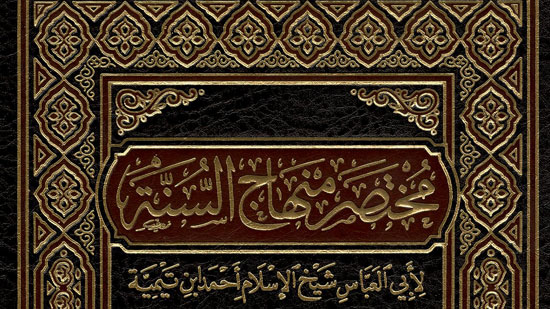 مُخْتَصَر مِنْهَاج السُّنَّة
لِأَبِي العَبَّاسِ شَيْخِ الإِسْلَامِ أَحْمَد ابْنِ تَيْمِيَّة